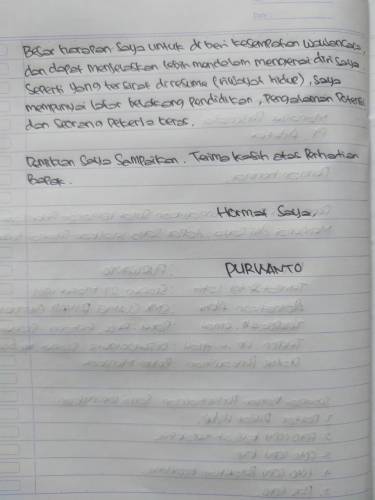 Besar harapan saya untuk di beri kesempatan wawancara,
dan dapat menjelaskan lebih mandalam mengenai diri saya
seperti yang tersirat di resume (riwayat hidup), saya
mempunyai latar belakang pendidikan, pengalaman potensi
dan seorang pekerja keras.
Demikian saya sampaikan. Terima kasih atas perhatian
Bapak.
Hormat saya,
PURWANTO